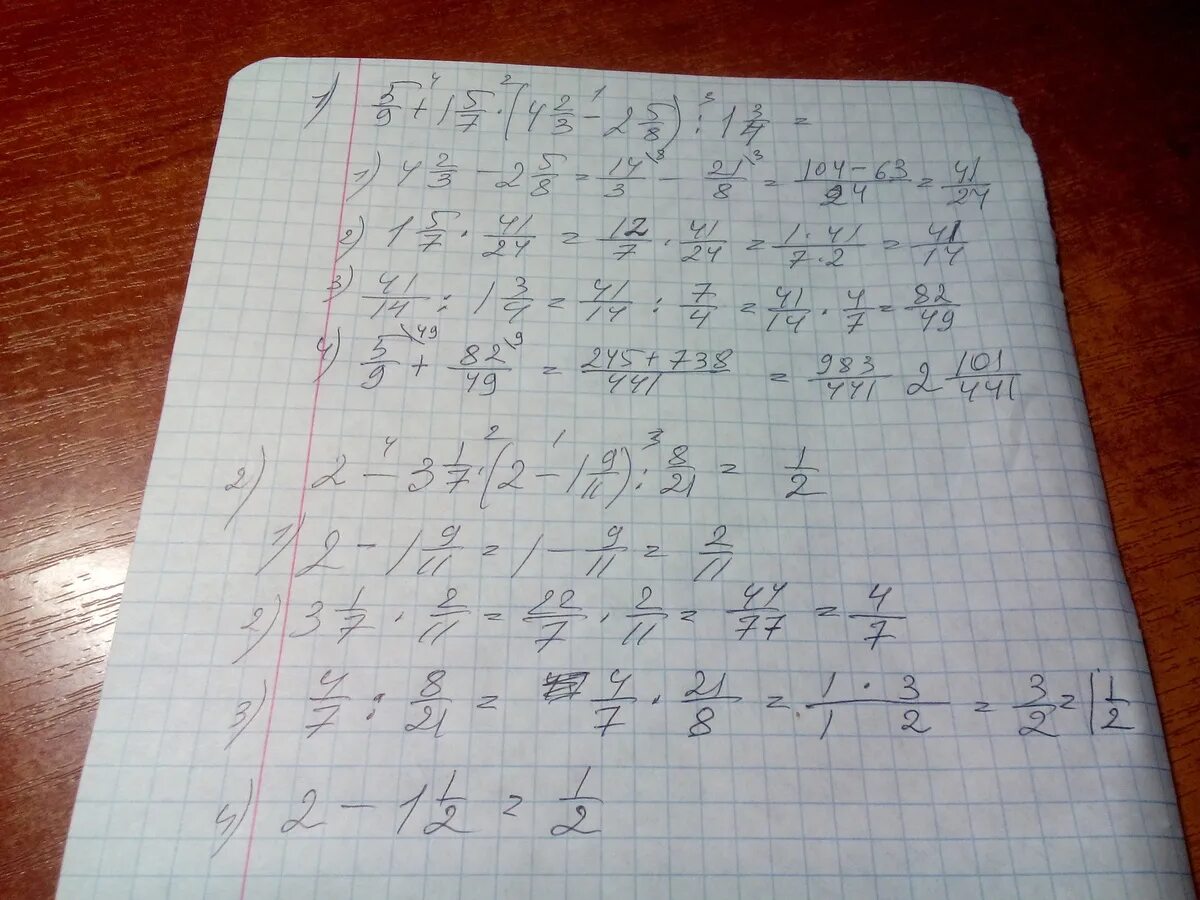 1) 5/9 +⁴ 1 5/7 ·² (4 2/3 −¹ 2 5/8) :³ 1 3/4 =
1) 4 2/3 − 2 5/8 = 14/3 \8 − 21/8 \3 = (104 − 63)/24 = 41/24
2) 1 5/7 · 41/24 = 12/7 · 41/24 = (1 · 41)/(7 · 2) = 41/14
3) 41/14 : 1 3/4 = 41/14 : 7/4 = 41/14 · 4/7 = 82/49
4) 5/9 \49 + 82/49 \9 = (245 + 738)/441 = 983/441 2 101/441
2) 2 −⁴ 3 1/7 ·² (2 −¹ 1 9/11) :³ 8/21 = 1/2
1) 2 − 1 9/11 = 1 − 9/11 = 2/11
2) 3 1/7 · 2/11 = 22/7 · 2/11 = 44/77 = 4/7
3) 4/7 : 8/21 = 4/7 · 21/8 = (1 · 3)/(1 2) = 3/2 = 1 1/2
4) 2 − 1 1/2 = 1/2